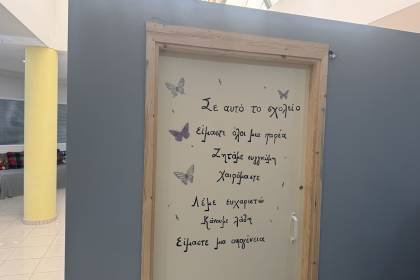 Σε αυτό το σχολείο
Είμαστε όλοι μια παρέα
Ζητάμε συγγνώμη
Χαιρόμαστε
Λέμε ευχαριστώ
Κάνουμε λάθη
Είμαστε μια οικογένεια